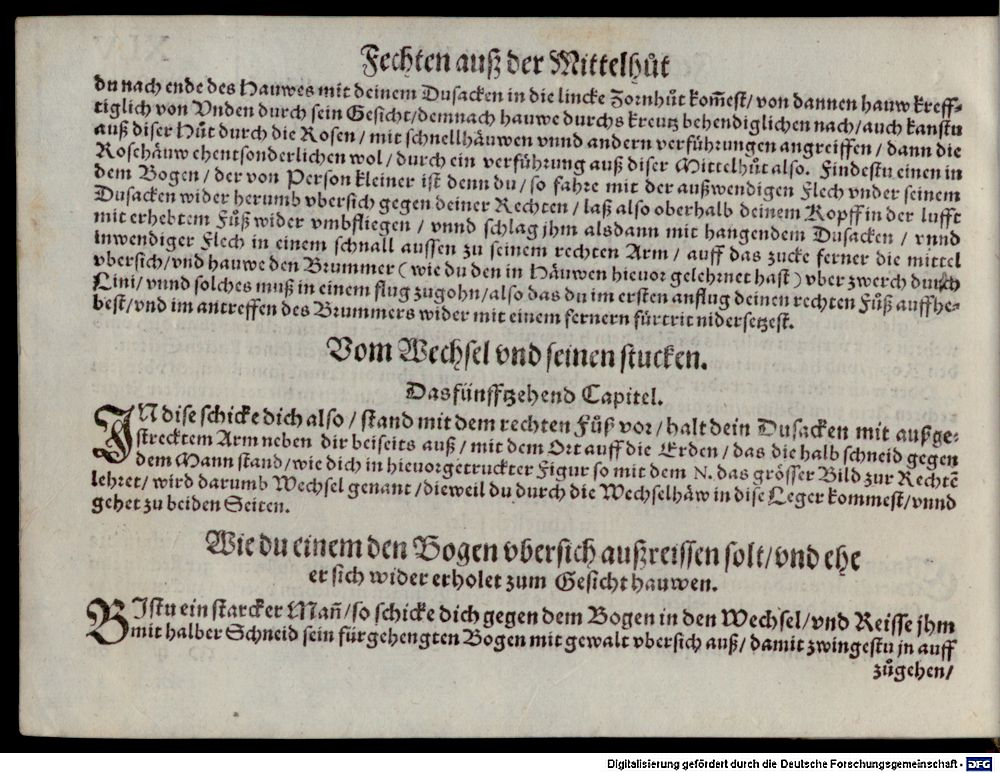 Fechten auß der Mittelhůt
du nach ende des Hauwes mit deinem Dusacken in die lincke Zornhůt kom̃est/ von dannen hauw kreff-
tiglich von Vnden durch sein Gesicht/ demnach hauwe durchs kreutz behendiglichen nach/ auch kanstu
auß diser Hůt durch die Rosen/ mit schnellhäuwen vnnd andern verführungen angreiffen/ dann die
Roshäuw ehent sonderlichen wol/ durch ein verführung auß diser Mittelhůt also. Findestu einen in
dem Bogen/ der von Person kleiner ist denn du/ so fahre mit der außwendigen Flech vnder seinem
Dusacken wider herumb vbersich gegen deiner Rechten/ laß also oberhalb deinem Kopff in der lufft
mit erhebtem Fůß wider vmbfliegen/ vnnd schlag jhm alsdann mit hangendem Dusacken/ vnnd
inwendiger Flech in einem schnall aussen zu seinem rechten Arm/ auff das zucke ferner die mittel
vbersich/ vnd hauwe den Brummer (wie du den in Häuwen hievor gelehrnet hast) vber zwerch durch
Lini/ vnnd solches muß in einem flug zugohn/ also das du im ersten anflug deinen rechten Fůß auffhe-
best/ vnd im antreffen des Brummers wider mit einem fernern fürtrit nidersetzest.
Vom Wechsel vnd seinen stucken.
Das fünfftzehend Capitel.
IN dise schicke dich also/ stand mit dem rechten Fůß vor/ halt dein Dusacken mit außge-
strecktem Arm neben dir beiseits auß/ mit dem Ort auff die Erden/ das die halb schneid gegen
dem Mann stand/ wie dich in hievorgetruckter Figur so mit dem N. das grösser Bild zur Rechtẽ
lehret/ wird darumb Wechsel genant/ dieweil du durch die Wechselhäw in dise Leger kommest/ vnnd
gehet zu beiden Seiten.
Wie du einem den Bogen vbersich außreissen solt/ vnd ehe
er sich wider erholet zum Gesicht hauwen.
BIstu ein starcker Man̄/ so schicke dich gegen dem Bogen in den Wechsel/ vnd Reisse jhm
mit halber Schneid sein fürgehengten Bogen mit gewalt vbersich auß/ damit zwingestu jn auff
zůgehen/
Digitalisierung gefördert durch die Deutsche Forschungsgemeinschaft - DFG